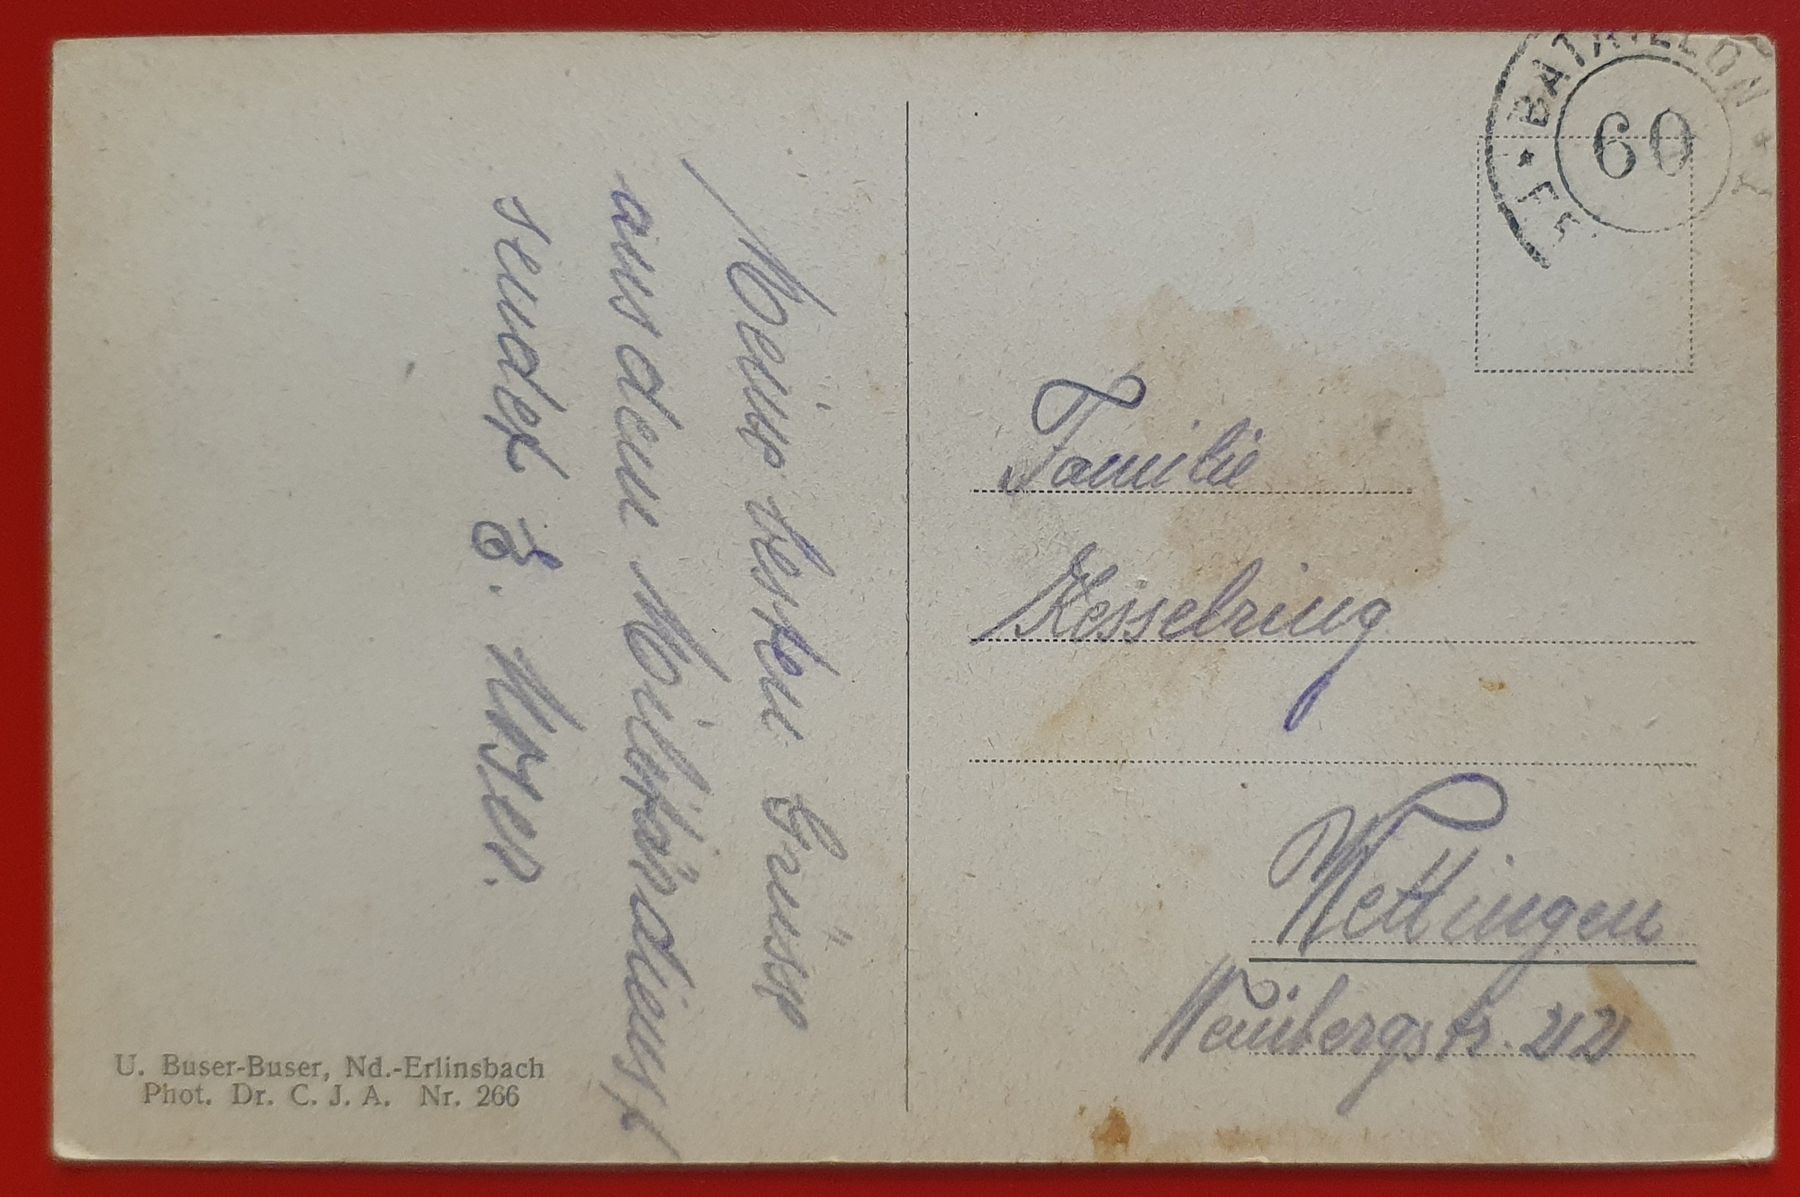 Meine besten Grüsse
aus dem Militärdienst
sendet E. Moser.
BATAILLON
60
Familie
Kesselring
Wettingen
Weinbergstr. 22
U. Buser-Buser, Nd.-Erlinsbach
Phot. Dr. C. J. A. Nr. 266